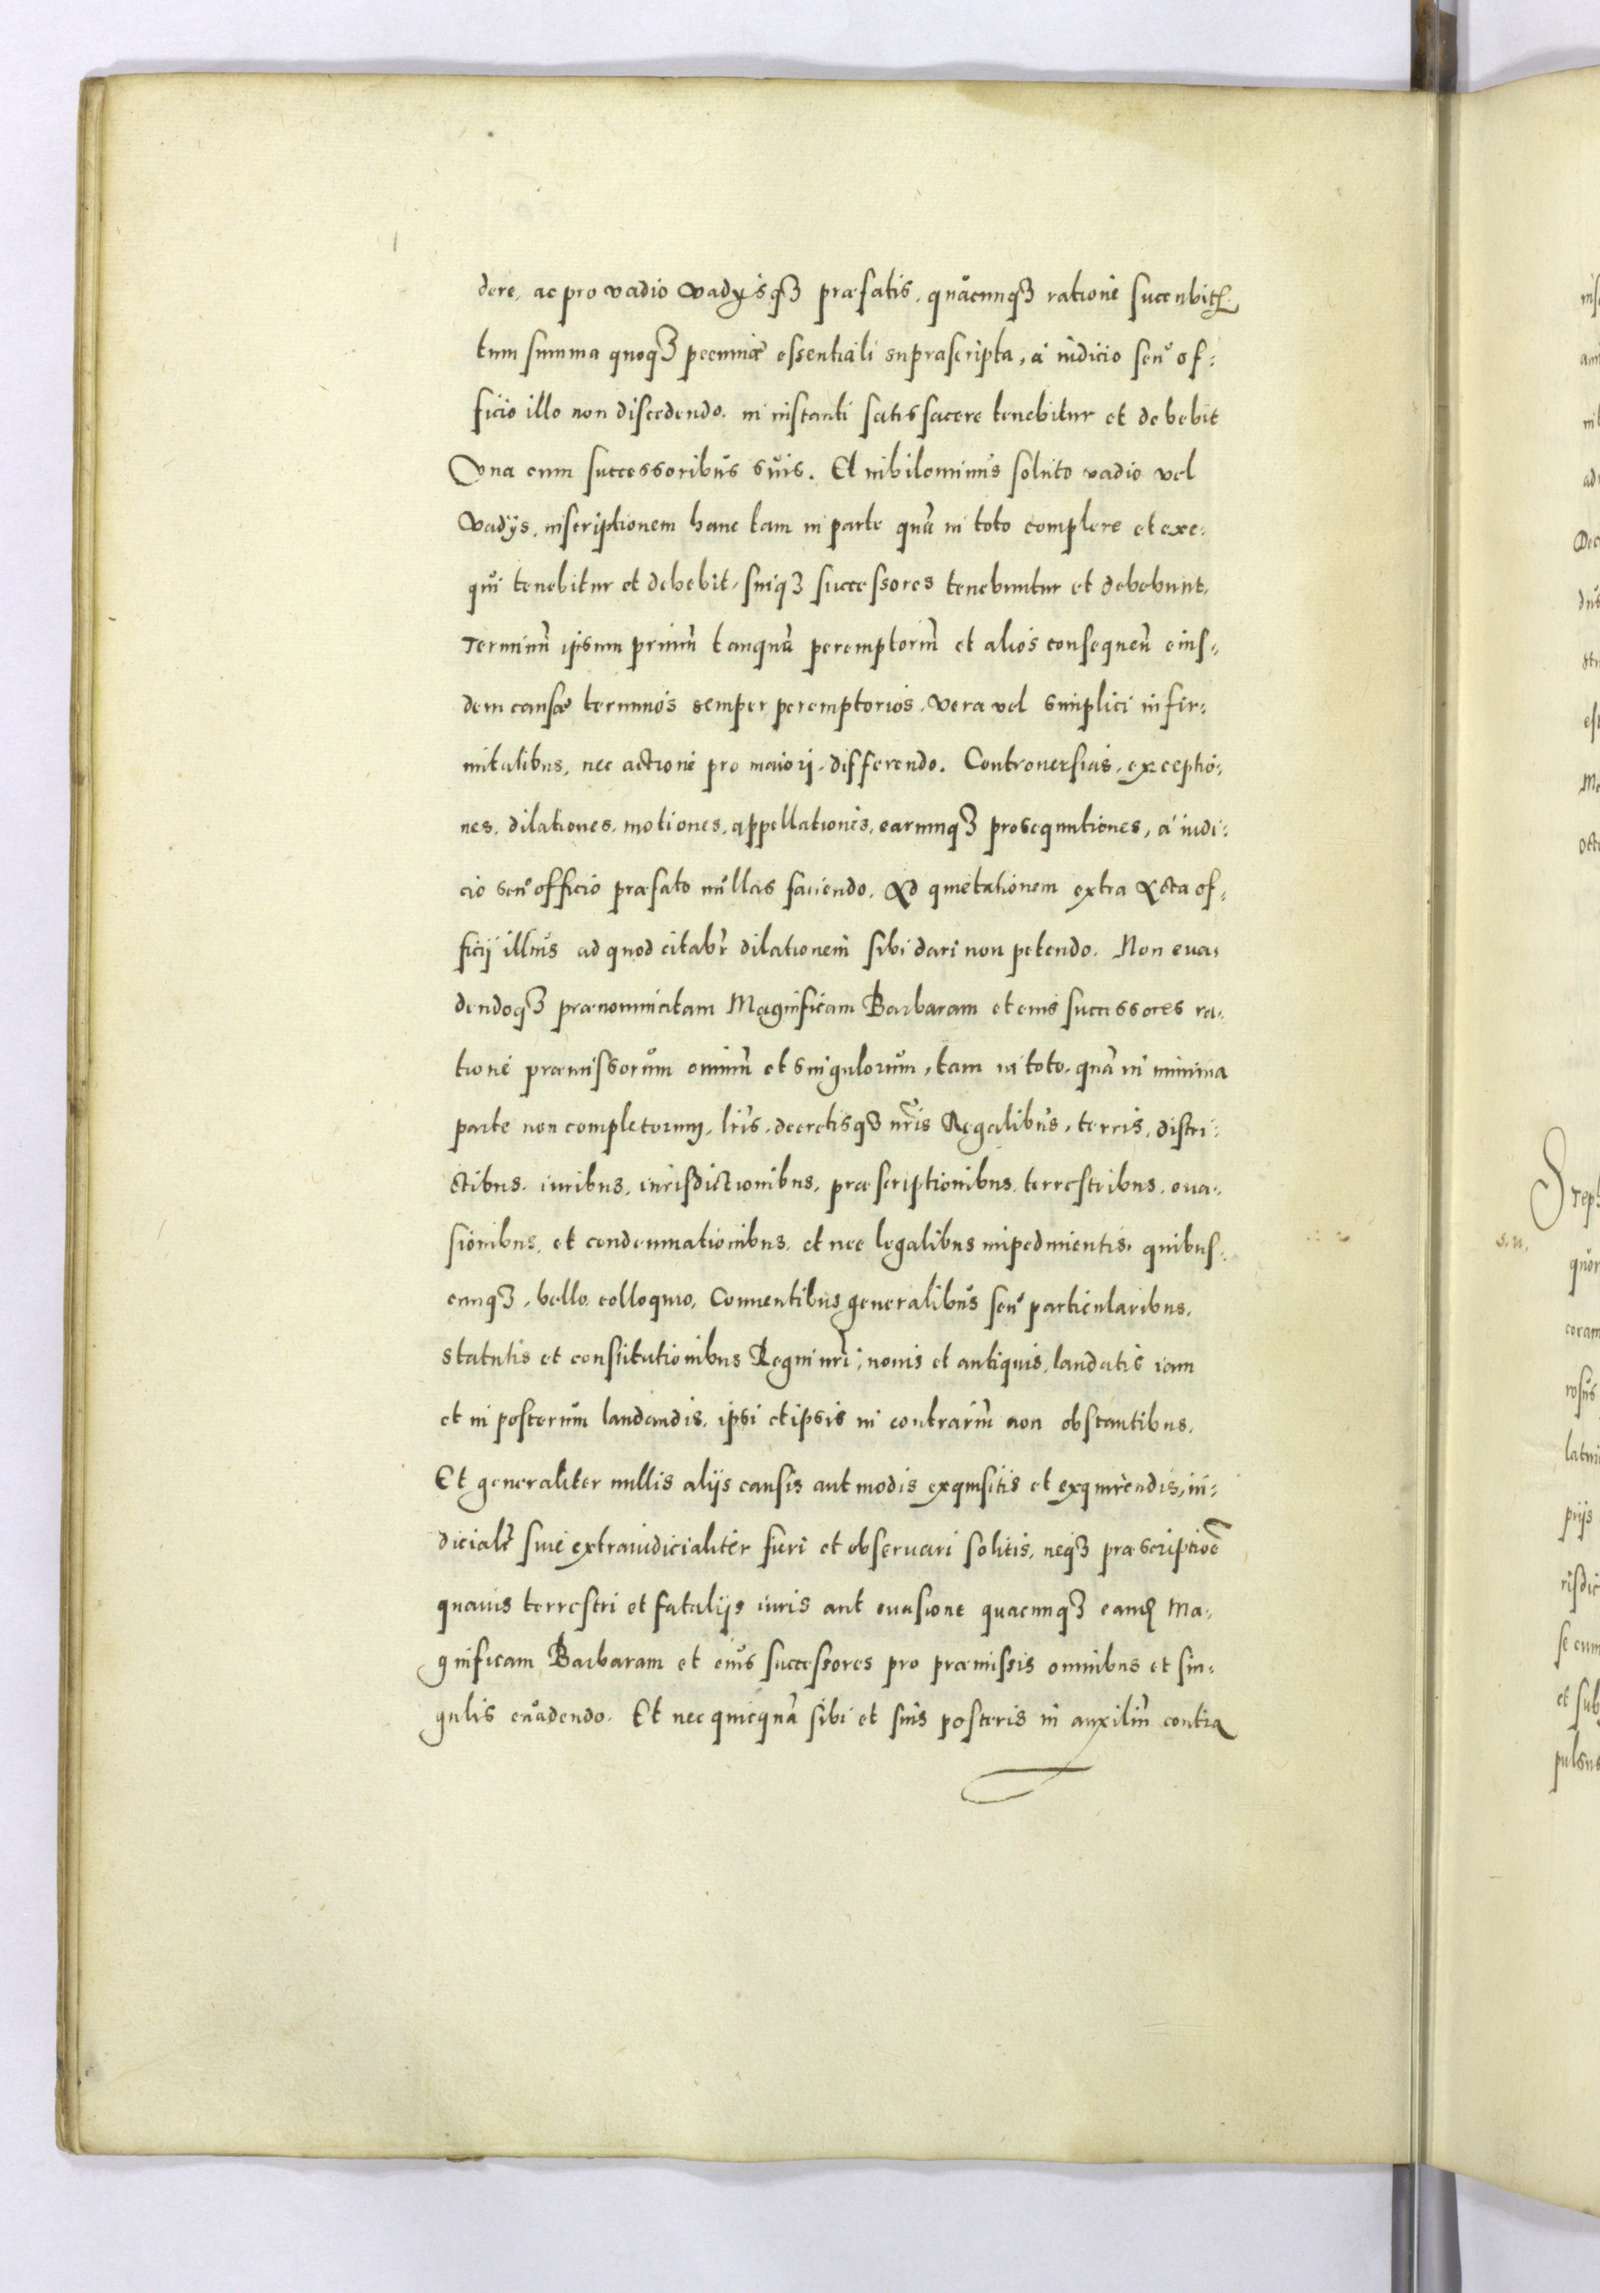 dere, ac pro vadio vadysqȝ præfatis, quacunqȝ ratione sucenbitꝭ
tum summa quoqȝ pecuniæ essentiali suprascripta, a iudicio seu of:
ficio illo non discedendo in instanti satisfacere tenebitur et debebit
Vna cum successoribus suis. Et nihilominus soluto vadio vel
vadijs, inscriptionem hanc tam in parte quā in toto complere et exe:
qui tenebitur et debebit, suiqȝ successores tenebuntur et debebunt,
Terminū ipsum primū tanquā peremptoriū et alios consequeñ eius:
dem causæ terminos semper peremptorios, vera vel simplici infir:
mitatibus, nec actione pro maiori, differendo. Controuersias, exceptio:
nes, dilationes, motiones, appellationes, earumqȝ prosequutiones, a iudi:
cio seu officio præfato nullas faciendo, Ad quietationem extra Acta of:
ficij illius ad quod citabr̄ dilationem sibi dari non petendo. Non eua:
dendoqȝ prænominatam Magnificam Barbaram et eius successores ra:
tione præmissorum omniū et singulorum, tam in toto, quā in minima
parte non completorum, lr̄is, decretisqȝ nr̄is Regalibus, terris, distri:
ctibus, iuribus, iurisdictionibus, præscriptionibus terrestribus, eua:
sionibus, et condemnationibus, et nec legalibus impedimentis, quibus:
cunqȝ, bello, colloquio, Conuentibus generalibus seu particularibus,
statutis et constitutionibus Regni nr̄i, nouis et antiquis, laudatis iam
et in posterum laudandis, ipsi et ipsis in contrariū non obstantibus.
Et generaliter nullis alijs causis aut modis exquisitis et exquirendis, iu:
dicialr̄ siue extraiudicialiter fieri et obseruari solitis, neqȝ præscriptiōe
quauis terrestri et fatalijs iuris aut euasione quacunqȝ eandꝭ Ma:
gnificam Barbaram et eius successores pro præmissis omnibus et sin:
gulis euadendo. Et nec quicquā sibi et suis posteris in auxiliū contra